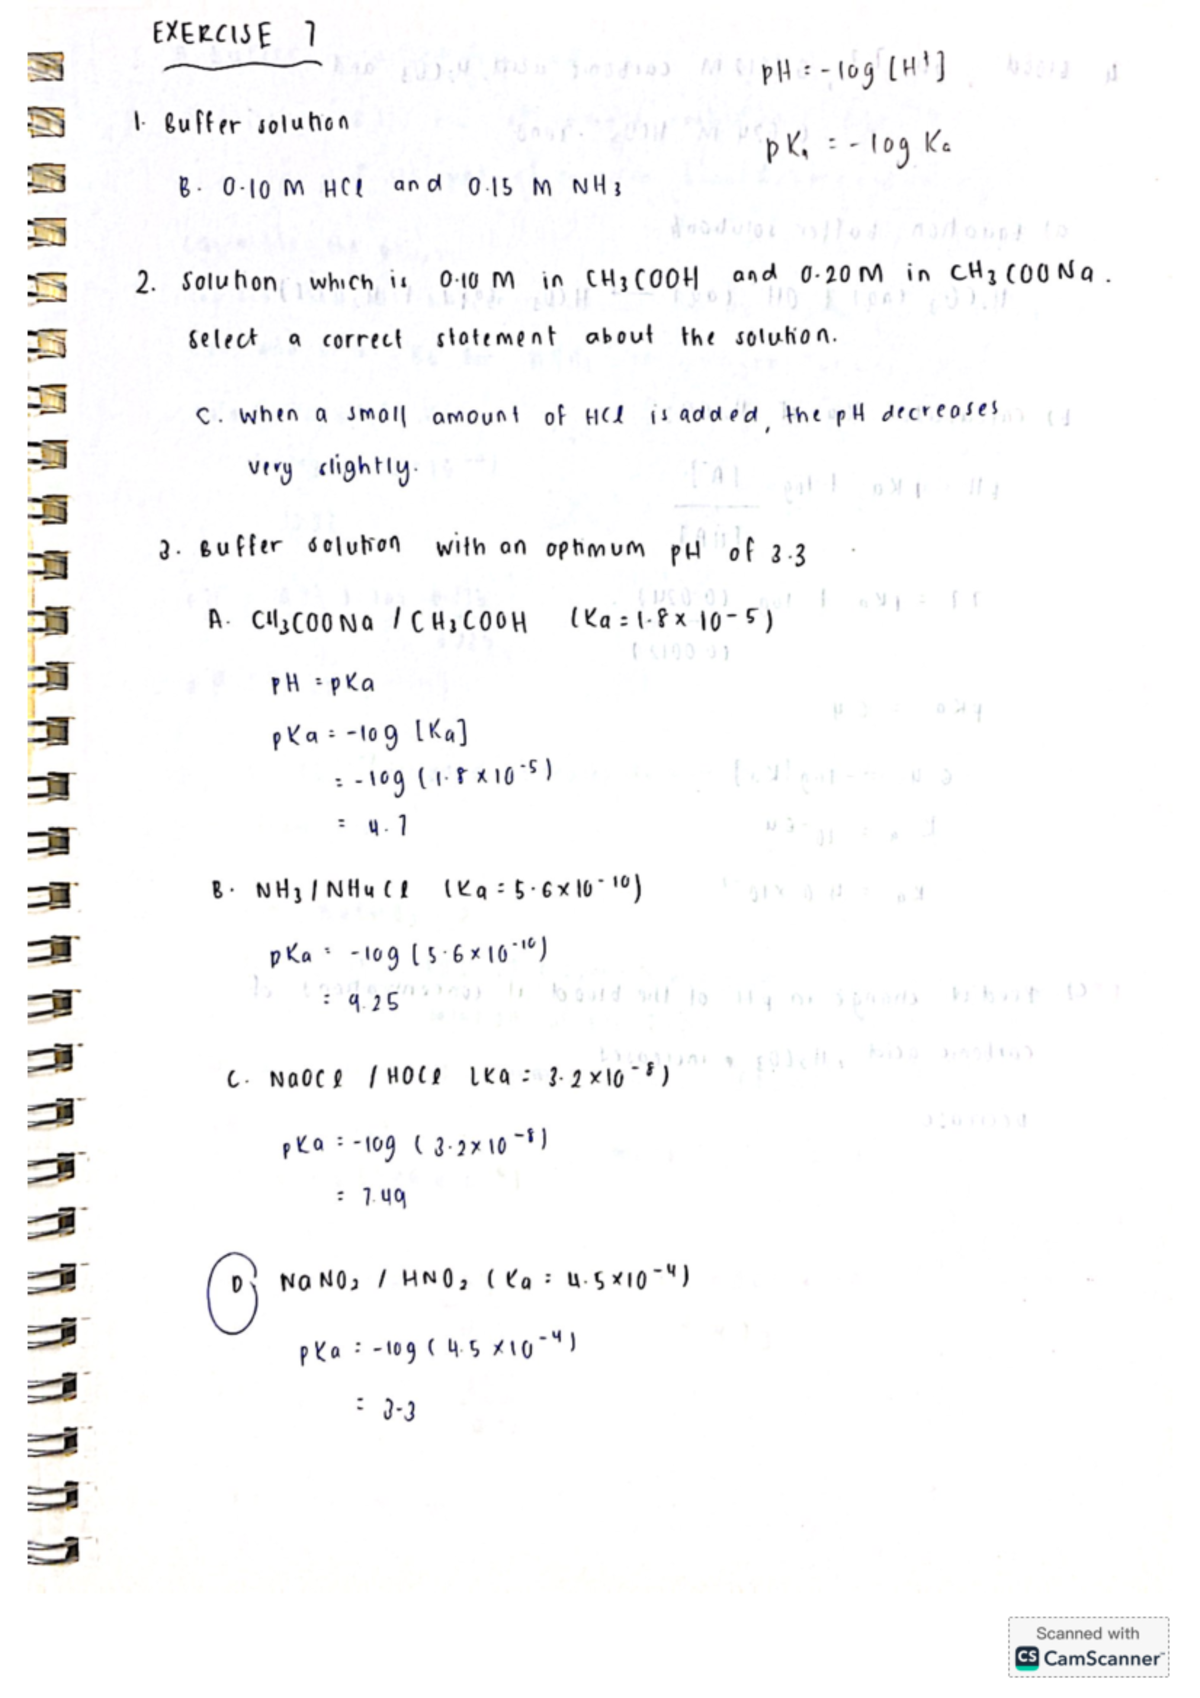 EXERCISE 7
pH = -log [H+]
1. Buffer solution
pKa = -log Ka
B. 0.10 M HCl and 0.15 M NH3
2. Solution which is 0.10 M in CH3COOH and 0.20 M in CH3COONa.
Select a correct statement about the solution.
C. When a small amount of HCl is added, the pH decreases
very slightly.
3. Buffer solution with an optimum pH of 3.3
A. CH3COONa / CH3COOH (Ka = 1.8 × 10-5)
pH = pKa
pKa = -log [Ka]
= -log (1.8 × 10-5)
= 4.7
B. NH3 / NH4Cl (Ka = 5.6 × 10-10)
pKa = -log (5.6 × 10-10)
= 9.25
C. NaOCl / HOCl (Ka = 3.2 × 10-8)
pKa = -log (3.2 × 10-8)
= 7.49
D. NaNO2 / HNO2 (Ka = 4.5 × 10-4)
pKa = -log (4.5 × 10-4)
= 3.3
Scanned with
CS CamScanner